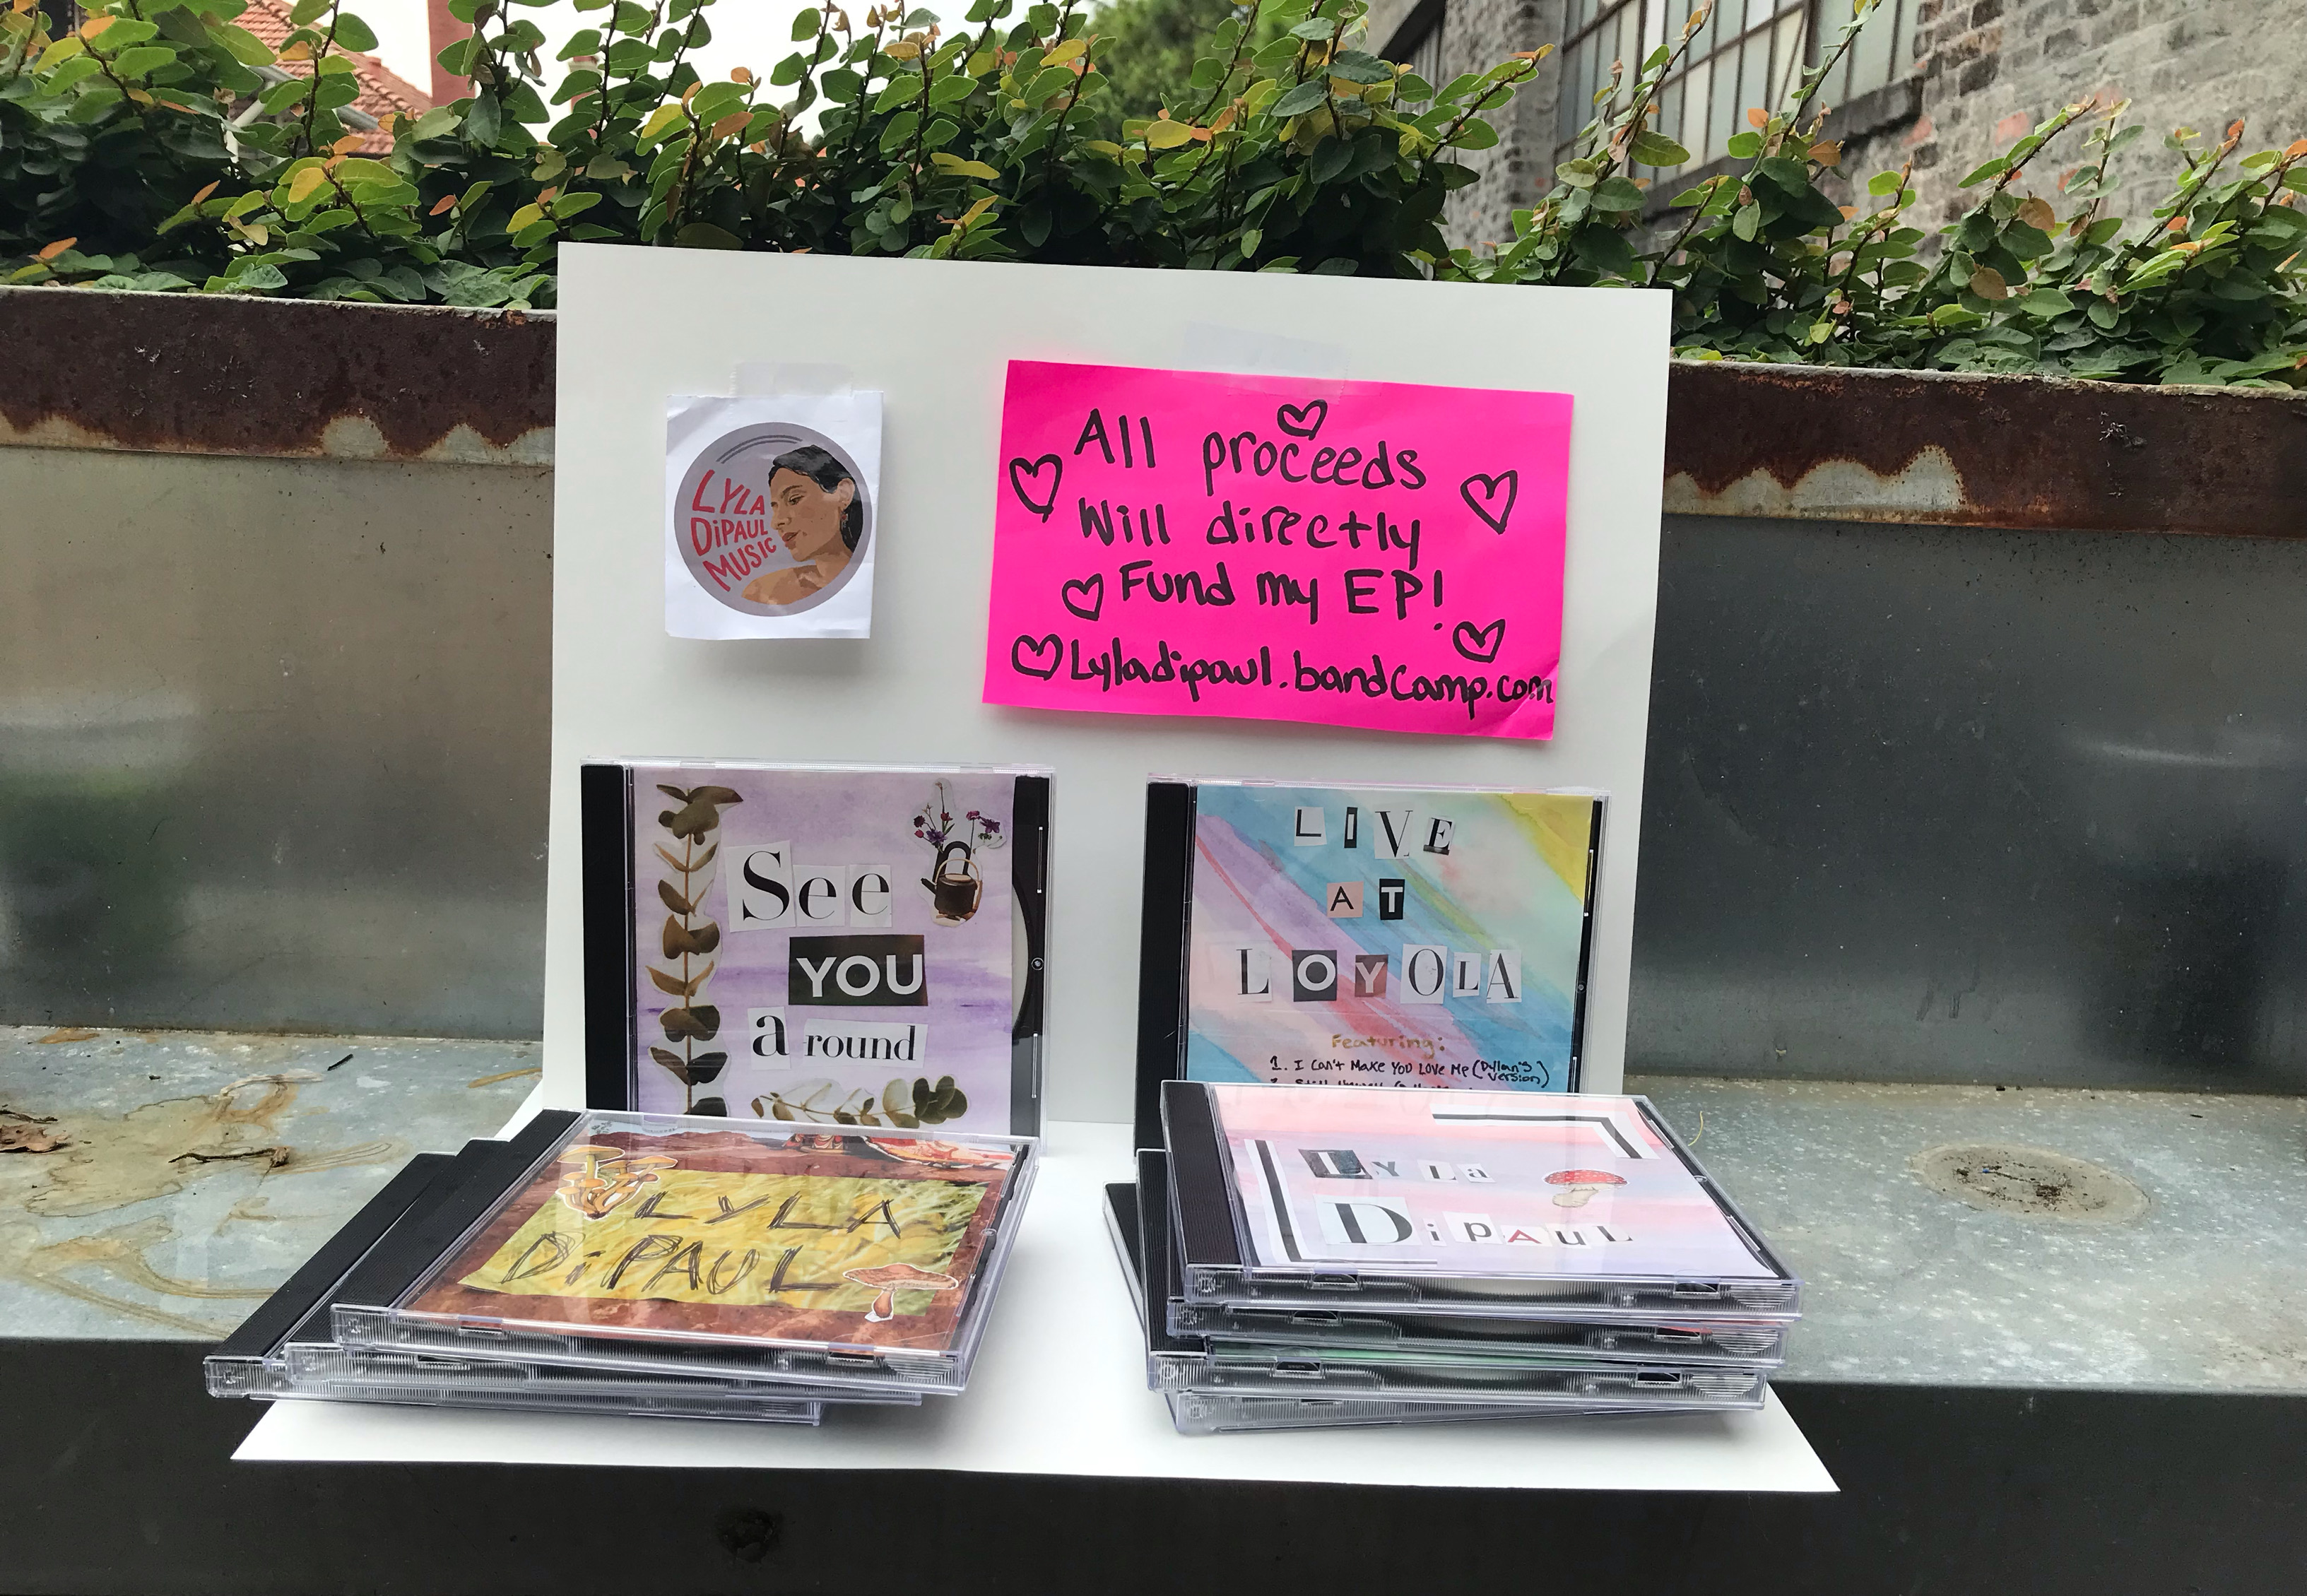 LYLA
DiPAUL
MUSIC
All proceeds
Will directly
Fund my EP!
Lyladipaul.bandcamp.com
See
YOU
around
LIVE
AT
LOYOLA
Featuring:
1. I Can't Make You Love Me (Dylan's
version)
LYLA
DiPAUL
Lyla
DipAUL